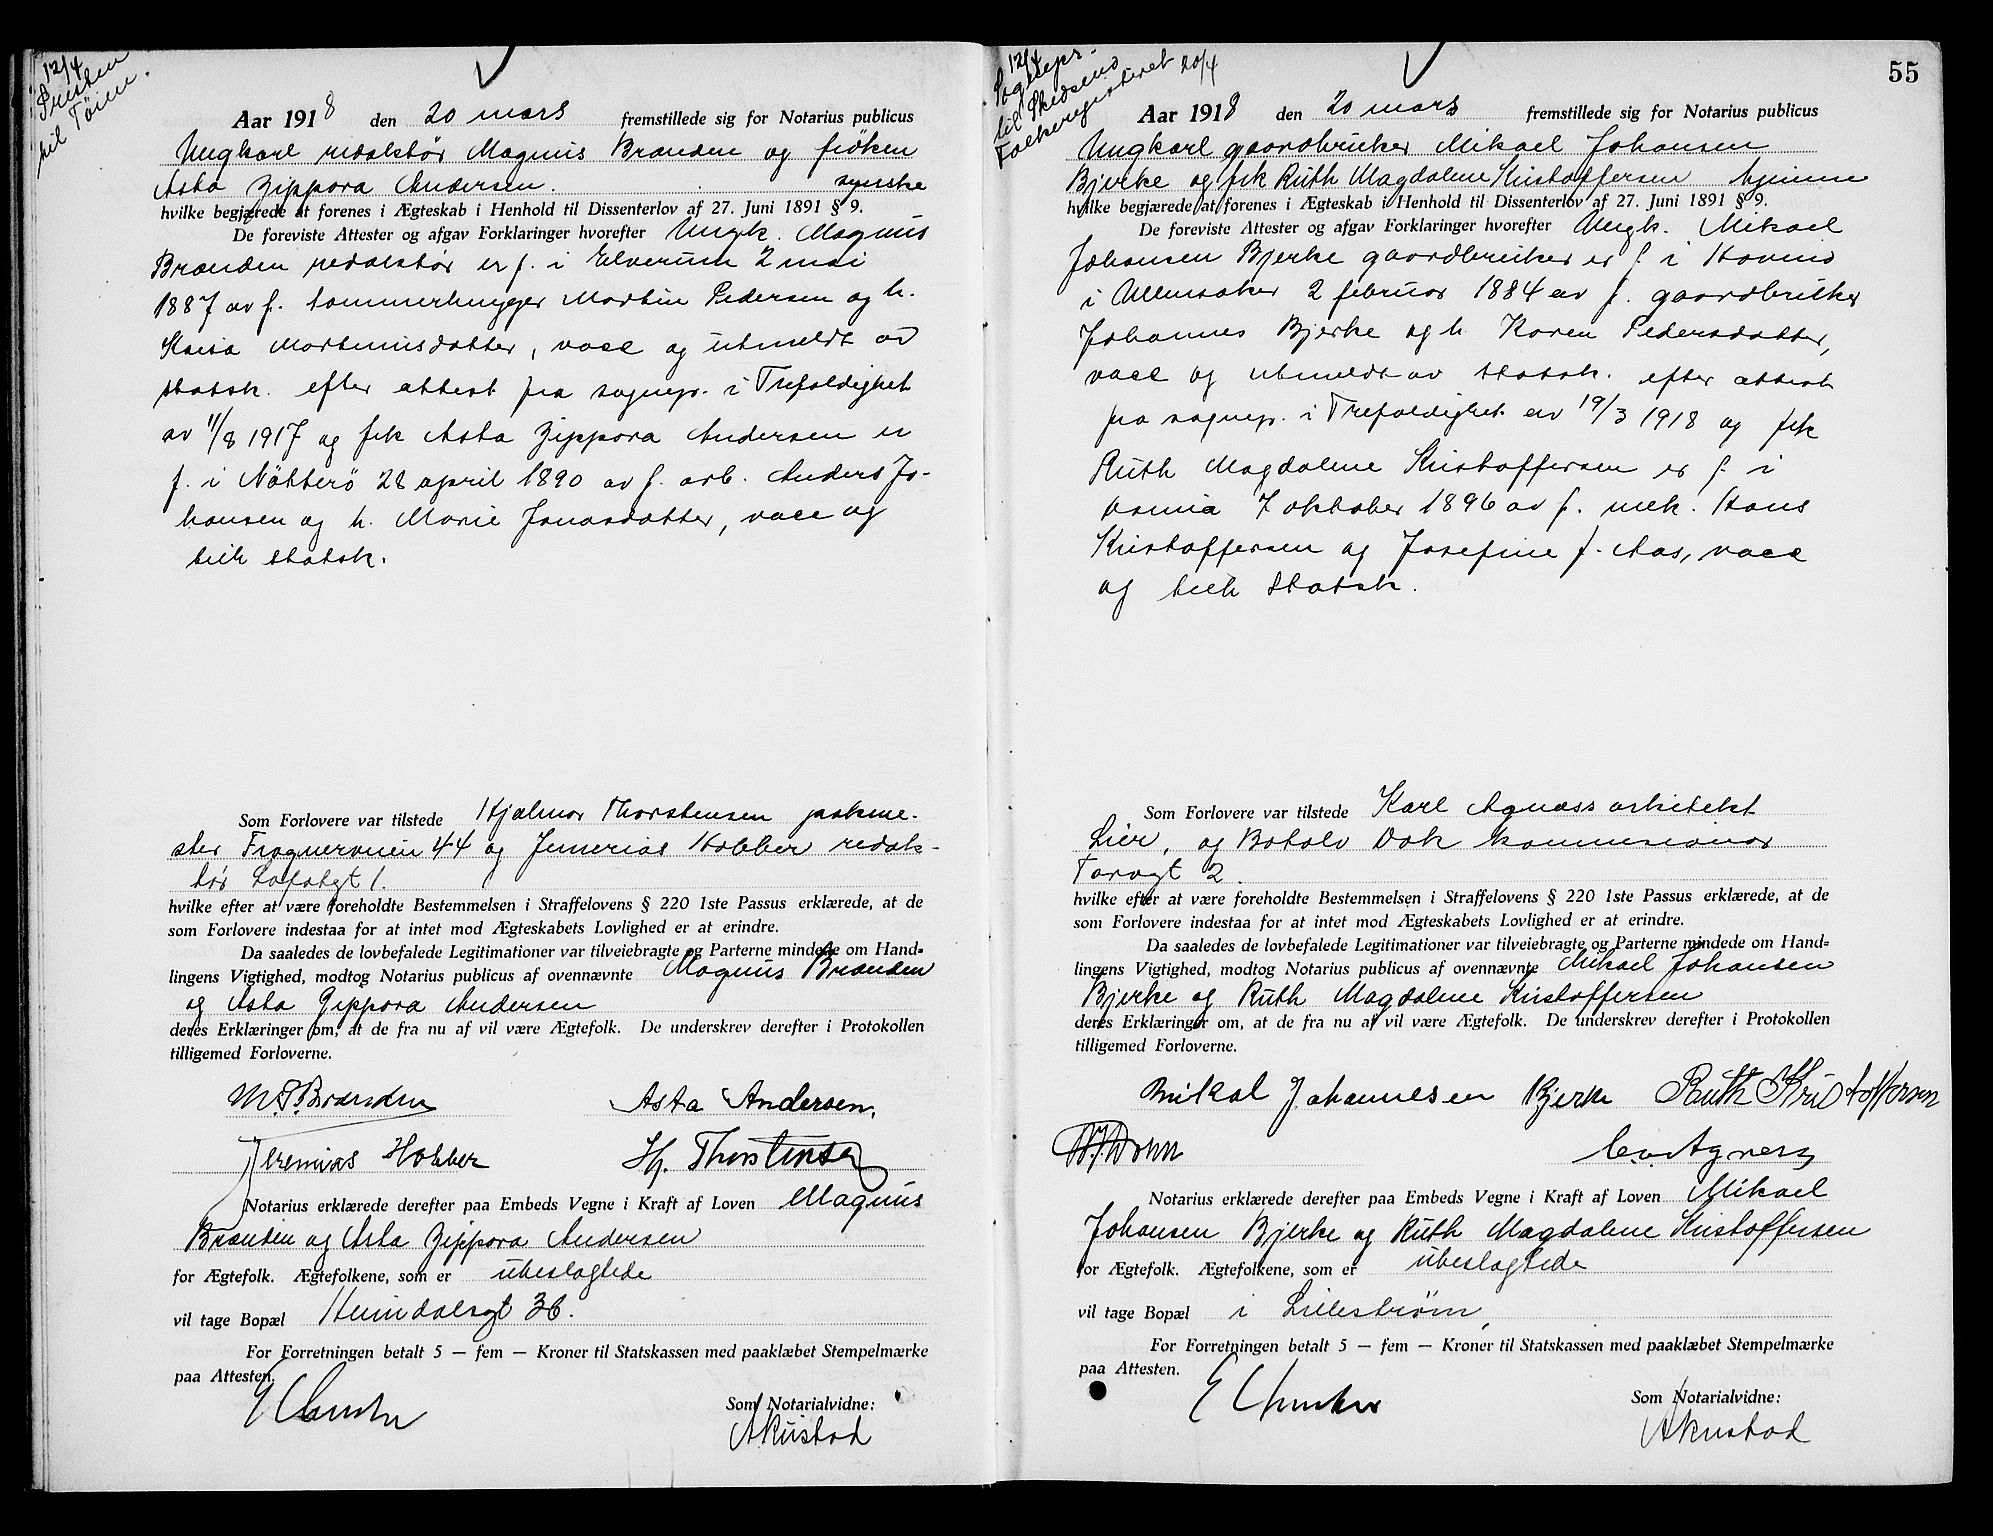 12/4
Presten
til Tøien.
Aar 1918 den 20 mars fremstillede sig for Notarius publicus
Ungkarl redaktør Magnus Brænden og frøken
Asta Zippora Andersen. syerske
hvilke begjærede at forenes i Ægteskab i Henhold til Dissenterlov af 27. Juni 1891 § 9.
De foreviste Attester og afgav Forklaringer hvorefter Ungk. Magnus
Brænden redaktør er f. i Elverum 2 mai
1887 av f. tømmerhugger Martin Pedersen og h.
Kaisa Martinusdatter, vacc og utmeldt av
statsk. efter attest fra sognepr. i Trefoldighet
av 11/8 1917 og frk Asta Zippora Andersen er
f. i Nøtterø 28 april 1890 av f. arb. Anders Jo-
hansen og h. Marie Jonasdatter, vacc og
tilh statsk.
Som Forlovere var tilstede Hjalmar Thorstensen pakme-
ster Frognerveien 44 og Jemerias Hobber redak-
tør Lofotgt 1.
hvilke efter at være foreholdte Bestemmelsen i Straffelovens § 220 1ste Passus erklærede, at de
som Forlovere indestaa for at intet mod Ægteskabets Lovlighed er at erindre.
Da saaledes de lovbefalede Legitimationer var tilveiebragte og Parterne mindede om Hand-
lingens Vigtighed, modtog Notarius publicus af ovennævnte Magnus Brænden
og Asta Zippora Andersen
deres Erklæringer om, at de fra nu af vil være Ægtefolk. De underskrev derefter i Protokollen
tilligemed Forloverne.
M. P. Brænden Asta Andersen.
Jeremias Hobber Hj. Thorstensen
Notarius erklærede derefter paa Embeds Vegne i Kraft af Loven Magnus
Brænden og Asta Zippora Andersen
for Ægtefolk. Ægtefolkene, som er ubeslagtede
vil tage Bopæl Heimdalsgt 36.
For Forretningen betalt 5 — fem — Kroner til Statskassen med paaklæbet Stempelmærke
paa Attesten.
Som Notarialvidne:
55
12/4
Sognepr.
til Skedsmo
Folkeregisteret 20/4
Aar 1918 den 20 mars fremstillede sig for Notarius publicus
Ungkarl gaardbruker Mikael Johansen
Bjerke og frk Ruth Magdalene Kristoffersen hjemme
hvilke begjærede at forenes i Ægteskab i Henhold til Dissenterlov af 27. Juni 1891 § 9.
De foreviste Attester og afgav Forklaringer hvorefter Ungk. Mikael
Johansen Bjerke gaardbruker er f. i Hovind
i Ullensaker 2 februar 1884 av f. gaardbruker
Johannes Bjerke og h. Karen Pedersdatter,
vacc og utmeldt av statsk. efter attest
fra sognep. i Trefoldighet av 19/3 1918 og frk
Ruth Magdalene Kristoffersen er f. i
7 oktober 1896 av f. mek. Hans
Kristoffersen og Josefine f. Aas, vacc
og tilh statsk.
Som Forlovere var tilstede Karl Agnæss arkitekt
Lier, og Botolv Dok kommissionær
Torvgt 2.
hvilke efter at være foreholdte Bestemmelsen i Straffelovens § 220 1ste Passus erklærede, at de
som Forlovere indestaa for at intet mod Ægteskabets Lovlighed er at erindre.
Da saaledes de lovbefalede Legitimationer var tilveiebragte og Parterne mindede om Hand-
lingens Vigtighed, modtog Notarius publicus af ovennævnte Mikael Johansen
Bjerke og Ruth Magdalene Kristoffersen
deres Erklæringer om, at de fra nu af vil være Ægtefolk. De underskrev derefter i Protokollen
tilligemed Forloverne.
Mikal Johannesen Bjerke Ruth Kristoffersen
Agness
Notarius erklærede derefter paa Embeds Vegne i Kraft af Loven Mikael
Johansen Bjerke og Ruth Magdalene Kristoffersen
for Ægtefolk. Ægtefolkene, som er ubeslagtede
vil tage Bopæl i Lillestrøm,
For Forretningen betalt 5 — fem — Kroner til Statskassen med paaklæbet Stempelmærke
paa Attesten.
Som Notarialvidne: